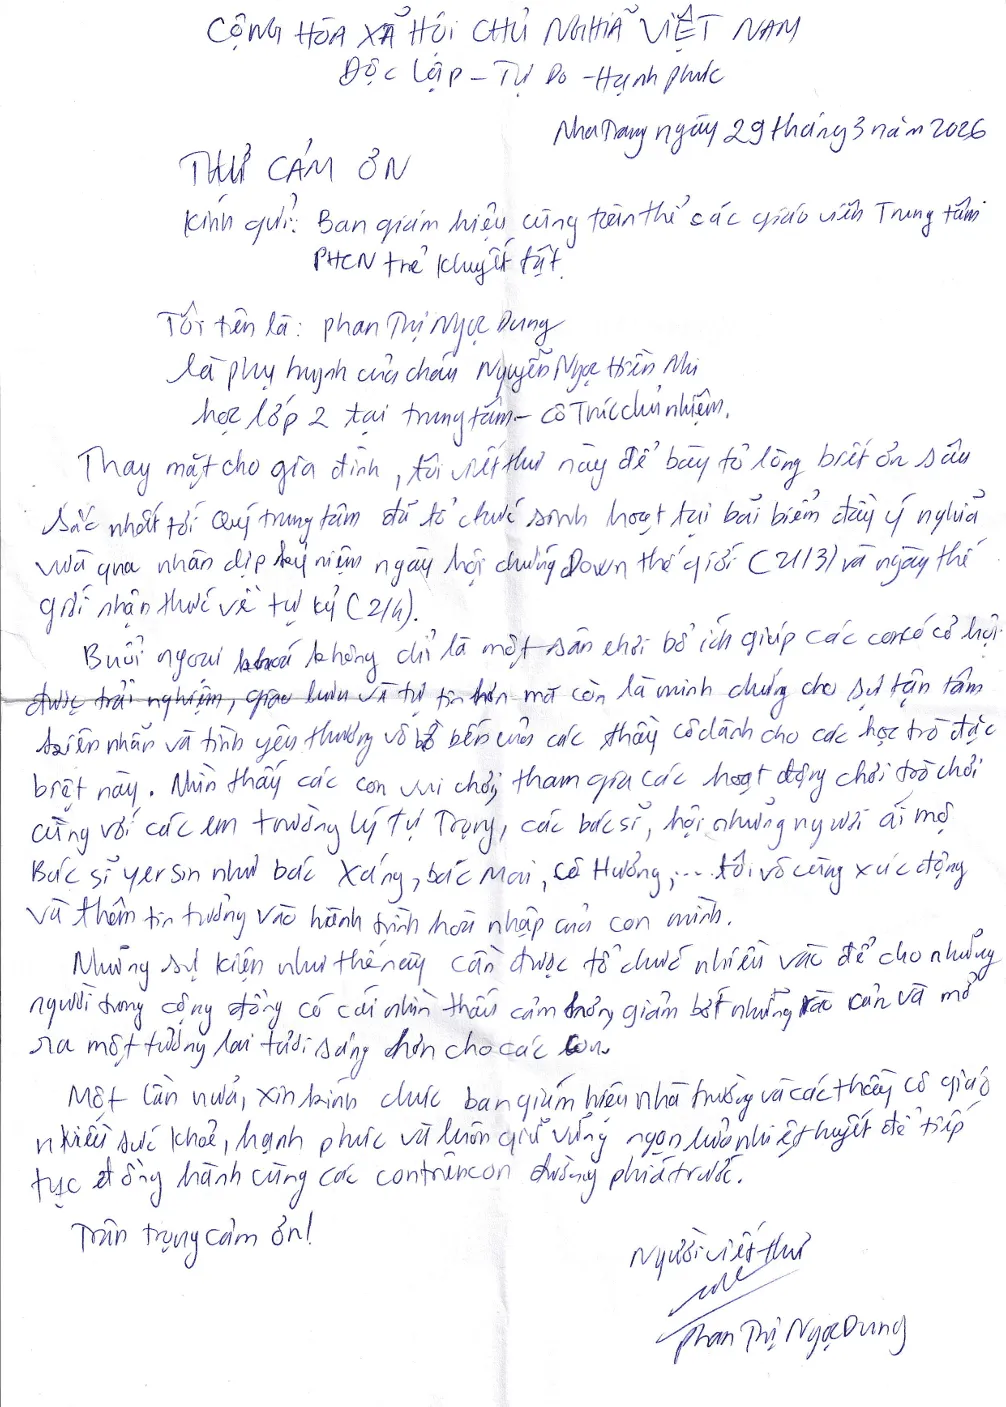 CỘNG HÒA XÃ HỘI CHỦ NGHĨA VIỆT NAM
Độc lập - Tự Do - Hạnh phúc
Nha Trang ngày 29 tháng 3 năm 2026
THƯ CẢM ƠN
Kính gửi: Ban giám hiệu cùng toàn thể các giáo viên Trung tâm
PHCN trẻ khuyết tật.
Tôi tên là: Phan Thị Ngọc Dung
là phụ huynh của cháu Nguyễn Ngọc Hiền Nhi
học lớp 2 tại trung tâm - cô Trúc chủ nhiệm.
Thay mặt cho gia đình, tôi viết thư này để bày tỏ lòng biết ơn sâu
sắc nhất tới Quý trung tâm đã tổ chức sinh hoạt tại bãi biển đầy ý nghĩa
vừa qua nhân dịp kỷ niệm ngày hội chứng Down thế giới (21/3) và ngày thế
giới nhận thức về tự kỷ (2/4).
Buổi ngoại khoá không chỉ là một sân chơi bổ ích giúp các con có cơ hội
được trải nghiệm, giao lưu và tự tin hơn mà còn là minh chứng cho sự tận tâm
kiên nhẫn và tình yêu thương vô bờ bến của các thầy cô dành cho các học trò đặc
biệt này. Nhìn thấy các con vui chơi, tham gia các hoạt động chơi trò chơi
cùng với các em trường Lý Tự Trọng, các bác sĩ, hội những người ái mộ
Bác sĩ yersin như bác Xáng, bác Mai, cô Hường,... tôi vô cùng xúc động
và thêm tin tưởng vào hành trình hoà nhập của con mình.
Những sự kiện như thế này cần được tổ chức nhiều vào để cho những
người trong cộng đồng có cái nhìn thấu cảm hơn, giảm bớt những rào cản và mở
ra một tương lai tươi sáng hơn cho các con.
Một lần nữa, xin kính chúc ban giám hiệu nhà trường và các thầy cô giáo
nhiều sức khoẻ, hạnh phúc và luôn giữ vững ngọn lửa nhiệt huyết để tiếp
tục đồng hành cùng các con trên con đường phía trước.
Trân trọng cảm ơn!
Người viết thư
Phan Thị Ngọc Dung